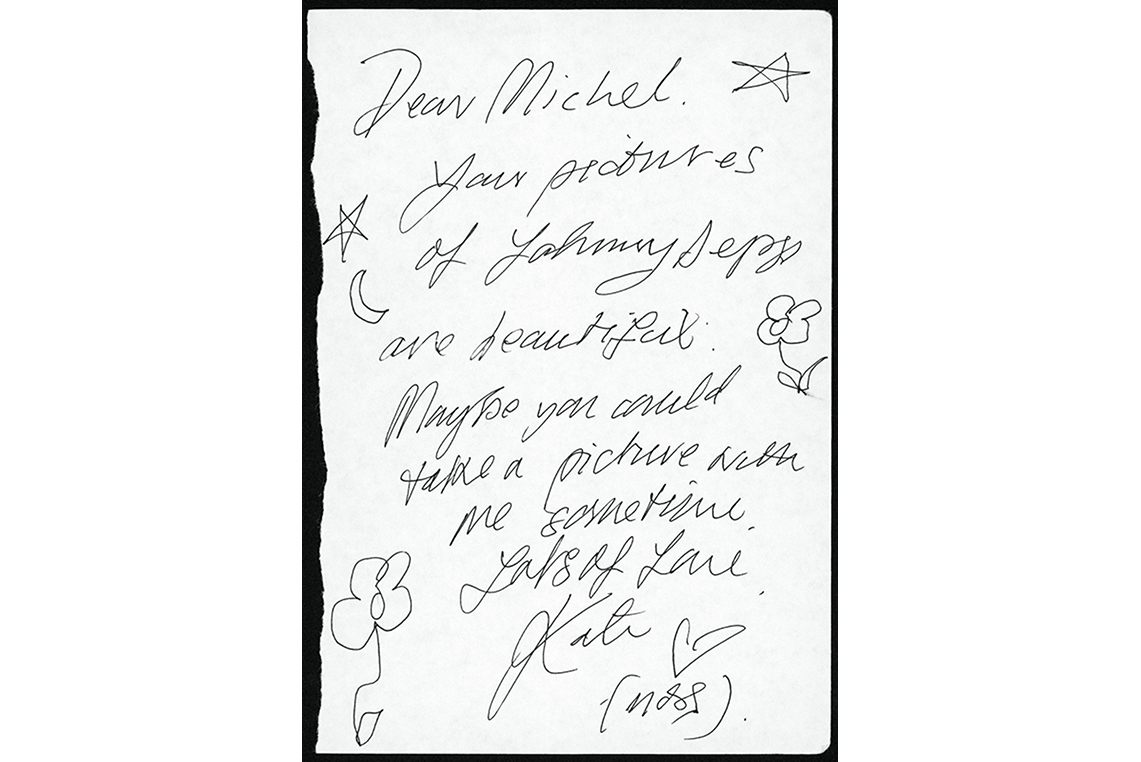 Dear Michel.
Your pictures
of Johnny Depp
are beautiful.
Maybe you could
take a picture with
me sometime.
Lots of Love.
Kate
(moss).